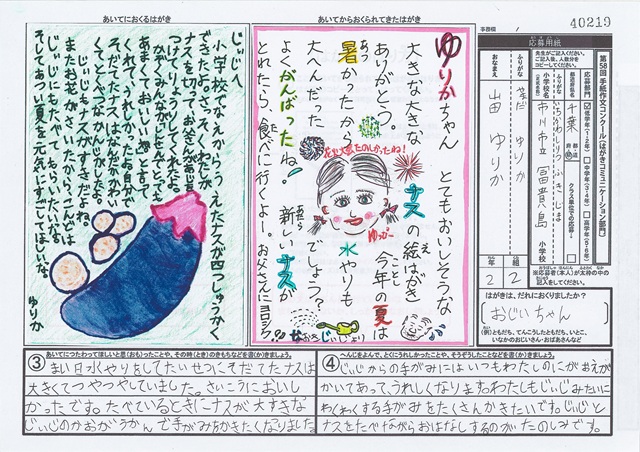 あいてにおくるはがき
じぃじへ
小学校でなえからうえたナスが四つしゅうかく
できたよ。さっそく、わたしが
ナスを切って、お母さんがお肉を
つけてりょうりしてくれたよ。
あまくておいしいねと言って
かぞくみんながしぜんととっても
くれてうれしかったよ。自分で
そだてたナスは、なんだかかわい
くてとくべつなかんじがしたよ。
じぃじもナスがすきだよね。
またお花がさいたから、こんどは
じぃじにもたべてもらいたいな。
そしてあつい夏を元気にすごしてほしいな。
ゆりか
あいてからおくられてきたはがき
ゆりかちゃん
とてもおいしそうな
大きな大きなナスの絵はがき
ありがとう。今年の夏は
暑かったから水やりも
大へんだったでしょう?
よくがんばったね!新しいナスが
とれたら、食べに行くよー。お父さんにヨロシク!!
花火大会たのしかったね!
ゆっかー
なおきじぃじより
事務欄
40219
応募用紙
先生がご記入ください。
ご記入後、人数分を
コピーしてください。
第58回 手紙作文コンクール〈はがきコミュニケーション部門〉
応募部門
低学年(1・2年)
中学年(3・4年)
高学年(5・6年)
都道府県名
千葉
都道府県
クラス単位での応募
ふりがな
いちかわしりつ ふきしょ
小学校名
(正式名称)
市川市立 冨貴島
小学校
ふりがな
やまだ ゆりか
おなまえ
山田 ゆりか
2年
2組
※応募者(本人)が太枠の中の
記入をしてください。
はがきは、だれにおくりましたか?
(おじいちゃん)
(例)ともだち、てんこうしたともだち、いとこ、
いなかのおじいさん・おばあさんなど
③
あいてにつたわってほしいと思(おも)ったことや、その時(とき)のきもちなどを書(か)きましょう。
まい日水やりをしてたいせつにそだてたナスは
大きくてつやつやしていました。さいこうにおいし
かったです。たべているときにナスが大すきな
じぃじのかおがうかんで手がみをかきたくなりました。
④
へんじをよんで、とくにうれしかったことや、そうぞうしたことなどを書(か)きましょう。
じぃじからの手がみにはいつもわたしのにがおえが
かいてあって、うれしくなります。わたしもじぃじみたいに
わくわくする手がみをたくさんかきたいです。じぃじと
ナスをたべながらおはなしするのがたのしみです。